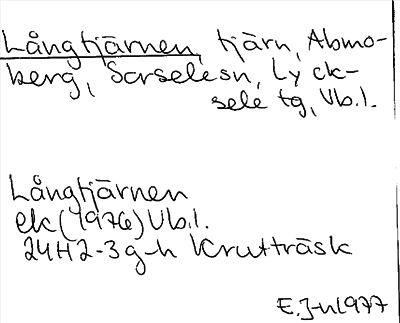 Långtjärnen, tjärn, Abmo-
berg, Sorselesn, Lyck-
sele tg, Vb.l.
Långtjärnen
ek (1976) Vb.l.
24H2-3g-h Krutträsk
E.J-n 1977